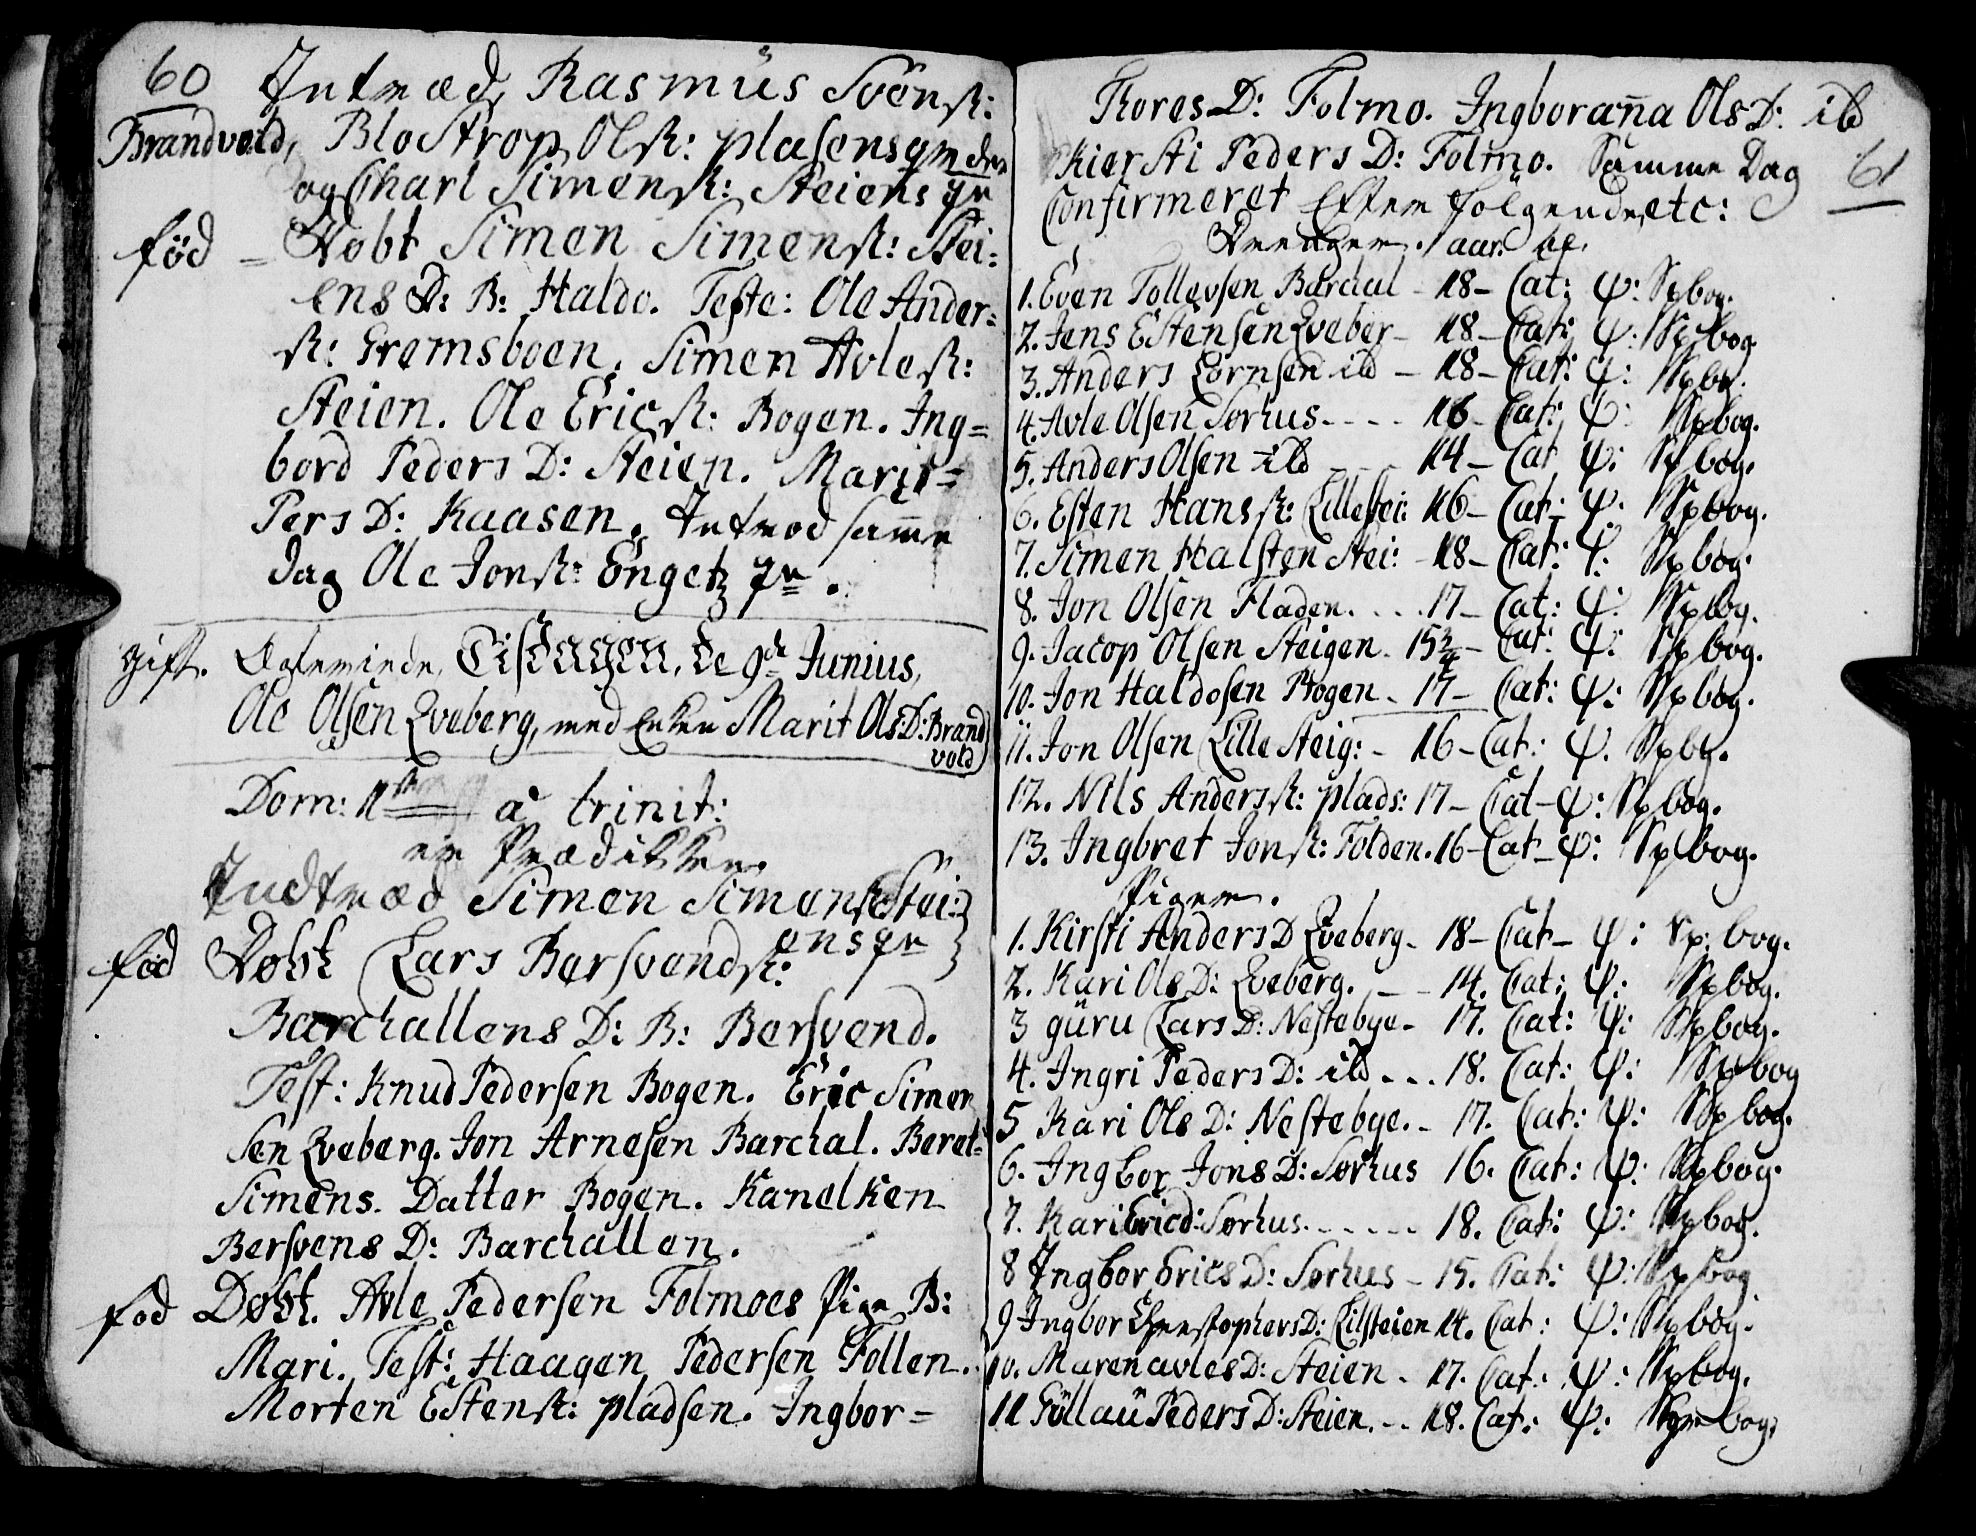 60 Introed, Rasmus Svensk:
Brandvold, Blostrop Olsk: plasens
og Charl Simensk: Steiens qv
fød – Døbt Simen Simensk: Stei:
ens D: B: Haldo. Teste: Ole Ander-
sk: Gremsboen. Simen Avlesk:
Steien. Ole Ericsk: Bogen. Ing=
bord Peders D: Steien. Marit=
Pers D: Kaasen. Introed samme
dag Ole Jonsk: Enget qv.
gift. Tisdagen, de 9de Junius,
Ole Olsen Qveberg, med Enken Marit Ols D: Brand
vold
Dom: 1ma à trinit:
en Prædikken.
Indtroed Simen Simensk: Stei:
ens qv
fød Døbt Lars Bersvendsk:
Barchallens D: B: Bersvend.
Test: Knud Pedersen Bogen. Eric Simen
sen Qveberg. Jon Arnesen Barchal. Beret:
Simens. Datter Bogen. Kanelken
Bersvens D: Barchallen.
fød Døbt. Avle Pedersen Folmoes Pige B:
Mari. Test: Haagen Pedersen Follen.
Morten Estensk: pladsen. Ingbor=
Thores D: Folmo. Ingboranna Ols D: ib
Kiersti Peders D: Folmo. Samme Dag
61
Confirmeret Efterfølgende, etc:
Drenger. aar.
1. Even Tollevsen Barchal – 18 – Cat: ψ: Spbog.
2. Jens Estensen Qveber – 18 – Cat: ψ: Spbog
3. Anders Lornsen ib – 18 – Cat: ψ: Spbo.
4. Avle Olsen Sørhus. - - - 16 – Cat: ψ: Spbog.
5. Anders Olsen ib - - - 14 – Cat ψ: Spbog.
6. Esten Hanssk: Lillestei: 16 – Cat: ψ: Spbog.
7. Simen Halsten Stei: – 18 – Cat: ψ: Spbog.
8. Jon Olsen Fladen. . . . 17 – Cat: ψ: Spbog.
9. Jacop Olsen Steigen. 15 3/4 – Cat: ψ: Spbog.
10. Jon Haldosen Bogen – 17 – Cat: ψ: Spbog.
11. Jon Olsen Lille Steig: – 16 – Cat: ψ. Spbg.
12. Nils Anderssk: plads: 17 – Cat – ψ: Spbog.
13. Ingbret Jonsk: Folden. 16 – Cat – ψ: Spbog.
Piger.
1. Kirsti Anders D Qveberg – 18 – Cat – ψ: Sp: bog.
2. Kari Ols D: Qveberg. – – 14. Cat: ψ: Spbog.
3 guru Lars D: Nestebye – 17. Cat: ψ: Spbog.
4. Ingri Peders D: ib . . . 18. Cat: ψ: Spbog
5 Kari Ols D: Nestebye. – 17. Cat: ψ: Spbog.
6. Ingbor Jons D: Sørhus 16. Cat: ψ: Spbog.
7. Kari Eric d: Sørhus. - - - - - 18. Cat: ψ: Spbog.
8 Ingbor Erics D: Sørhus – 15. Cat: ψ: Spbog
9 Ingbor Christophers D: Lilsteien 14. Cat: ψ: Spbog.
10. Maren avles D: Steien – 17. Cat: ψ: Spbog.
11 Gullau Peders D: Steien. – – 18. Cat: ψ: Spbog.